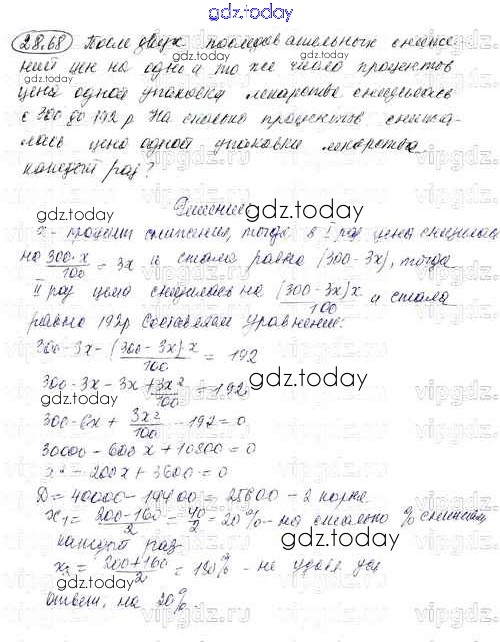 gdz.today
28.68 После двух последовательных сниже-
ний цен на одно и то же число процентов
цена одной упаковки лекарства снизилась
с 300 до 192 р. На сколько процентов снижа-
лась цена одной упаковки лекарства
каждый раз?
Решение
x - процент снижения, тогда в I раз цена снизилась
на 300·x/100 = 3x и стала равна (300-3x), тогда
II раз цена снизилась на (300-3x)x/100 и стала
равно 192р Составляем уравнение:
300-3x-(300-3x)x/100 = 192
300-3x-3x+3x²/100 = 192
300-6x+3x²/100-192=0
30000-600x+10800=0
x²-200x+3600=0
D=40000-14400=25600-2 корня
x₁=200-160/2=40/2=20%-на сколько % снижали
каждый раз
x₂=200+160/2=180%-не удовл. усл
Ответ: на 20%.